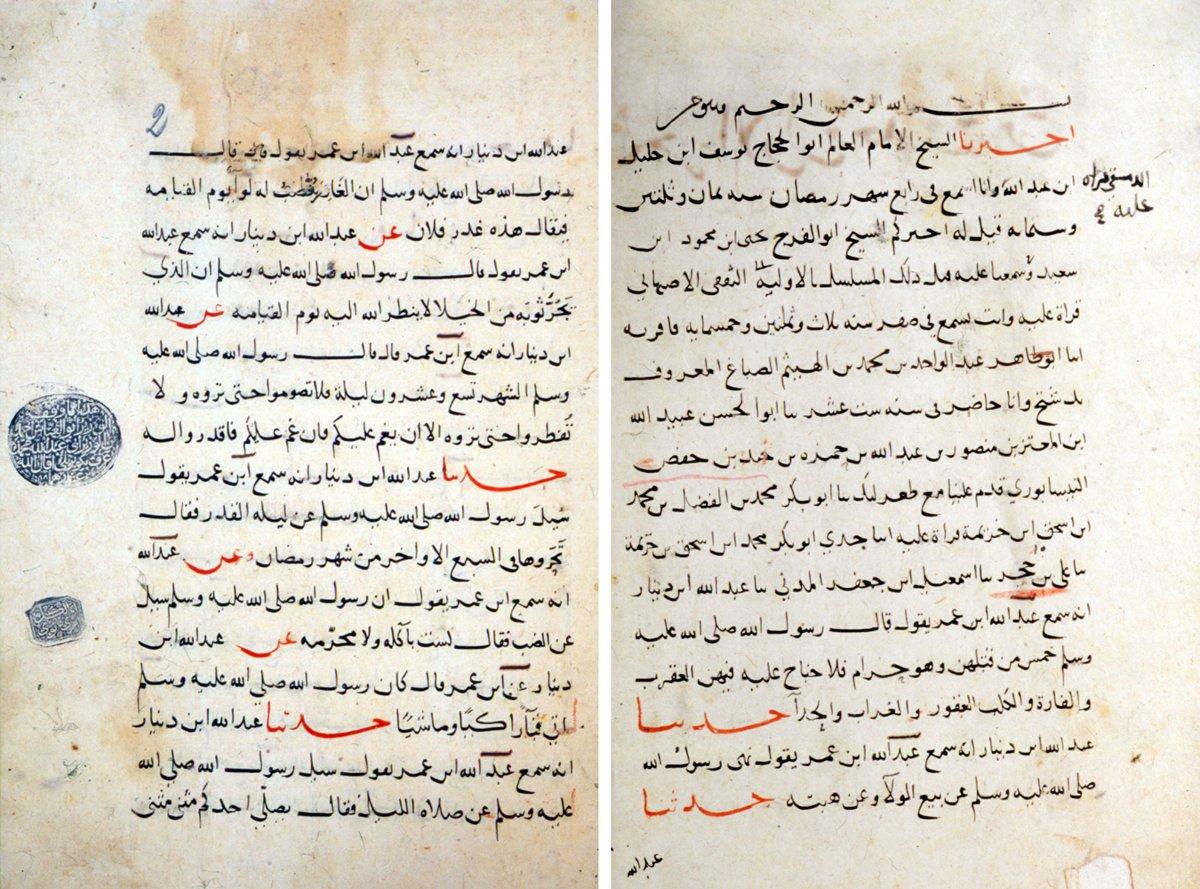 بسم الله الرحمن الرحيم
اخبرنا الشيخ الامام العالم ابو الحجاج يوسف ابن خليل
الدمشقي قراه
عليه
ابن عبد الله وانا اسمع في رابع شهر رمضان سنه ثمان وثلثين
وستمايه قيل له اخبركم الشيخ ابو الفرج يحيى ابن محمود ابن
سعيد وسمعنا عليه قبل ذلك المسلسل بالاولية الثقفي الاصبهاني
قراة عليه وانت تسمع في صفر سنه ثلاث وثمنين وخمسمايه فاقر به
انا ابو طاهر عبد الواحد بن محمد بن الهيثم الصباغ المعروف
بد شتج وانا حاضر في سنه ست عشر نا ابو الحسن عبيد الله
ابن المعتز بن منصور بن عبد الله بن حمزه بن حفص
النيسابوري قدم علينا مع طغرلبك نا ابو بكر محمد بن الفضل بن محمد
ابن اسحق ابن خزيمة قراة عليه انا جدي ابو بكر محمد ابن اسحق بن خزيمة
نا علي بن حُجر نا اسمعيل ابن جعفر المدني نا عبد الله ابن دينار
انه سمع عبد الله ابن عمر يقول قال رسول الله صلى الله عليه
وسلم خمس من قتلهن وهو حرام فلا جناح عليه فيهن العقرب
والفارة والكلب العقور والغراب والحدآ حدثنا
عبد الله ابن دينار انه سمع عبد الله ابن عمر يقول نهى رسول الله
صلى الله عليه وسلم عن بيع الولآ وعن هبته حدثنا
عبد الله
2
عبد الله ابن دينار انه سمع عبد الله ابن عمر يقول قال
رسول الله صلى الله عليه وسلم ان الغادر له لوآ يوم القيامه
فيقال هذه غدر فلان عن عبد الله ابن دينار انه سمع عبد الله
ابن عمر يقول قال رسول الله صلى الله عليه وسلم ان الذي
يَجُرُّ ثوبَه من الخيلا لا ينظر الله اليه يوم القيامه عن عبد الله
ابن دينار انه سمع ابن عمر قال قال رسول الله صلى الله عليه
وسلم الشهر تسع وعشرون ليلة فلا تصوموا حتى تروه ولا
تُفطروا حتى تروه الا ان يغم عليكم فان غم عليكم فاقدروا له
حدثنا عبد الله ابن دينار انه سمع ابن عمر يقول
سُيِل رسول الله صلى الله عليه وسلم عن ليله القدر فقال
تَحَروها في السبع الاواخر من شهر رمضان وعن عبد الله
انه سمع ابن عمر يقول ان رسول الله صلى الله عليه وسلم سيل
عن الضب فقال لست بآكله ولا محرّمه عن عبد الله ابن
دينار عن ابن عمر قال كان رسول الله صلى الله عليه وسلم
ياتي قبآ راكبًا وماشيًا حدثنا عبد الله ابن دينار
انه سمع عبد الله ابن عمر يقول سيل رسول الله صلى الله
عليه وسلم عن صلاه الليل فقال يصلّي احدكم مثنى مثنى